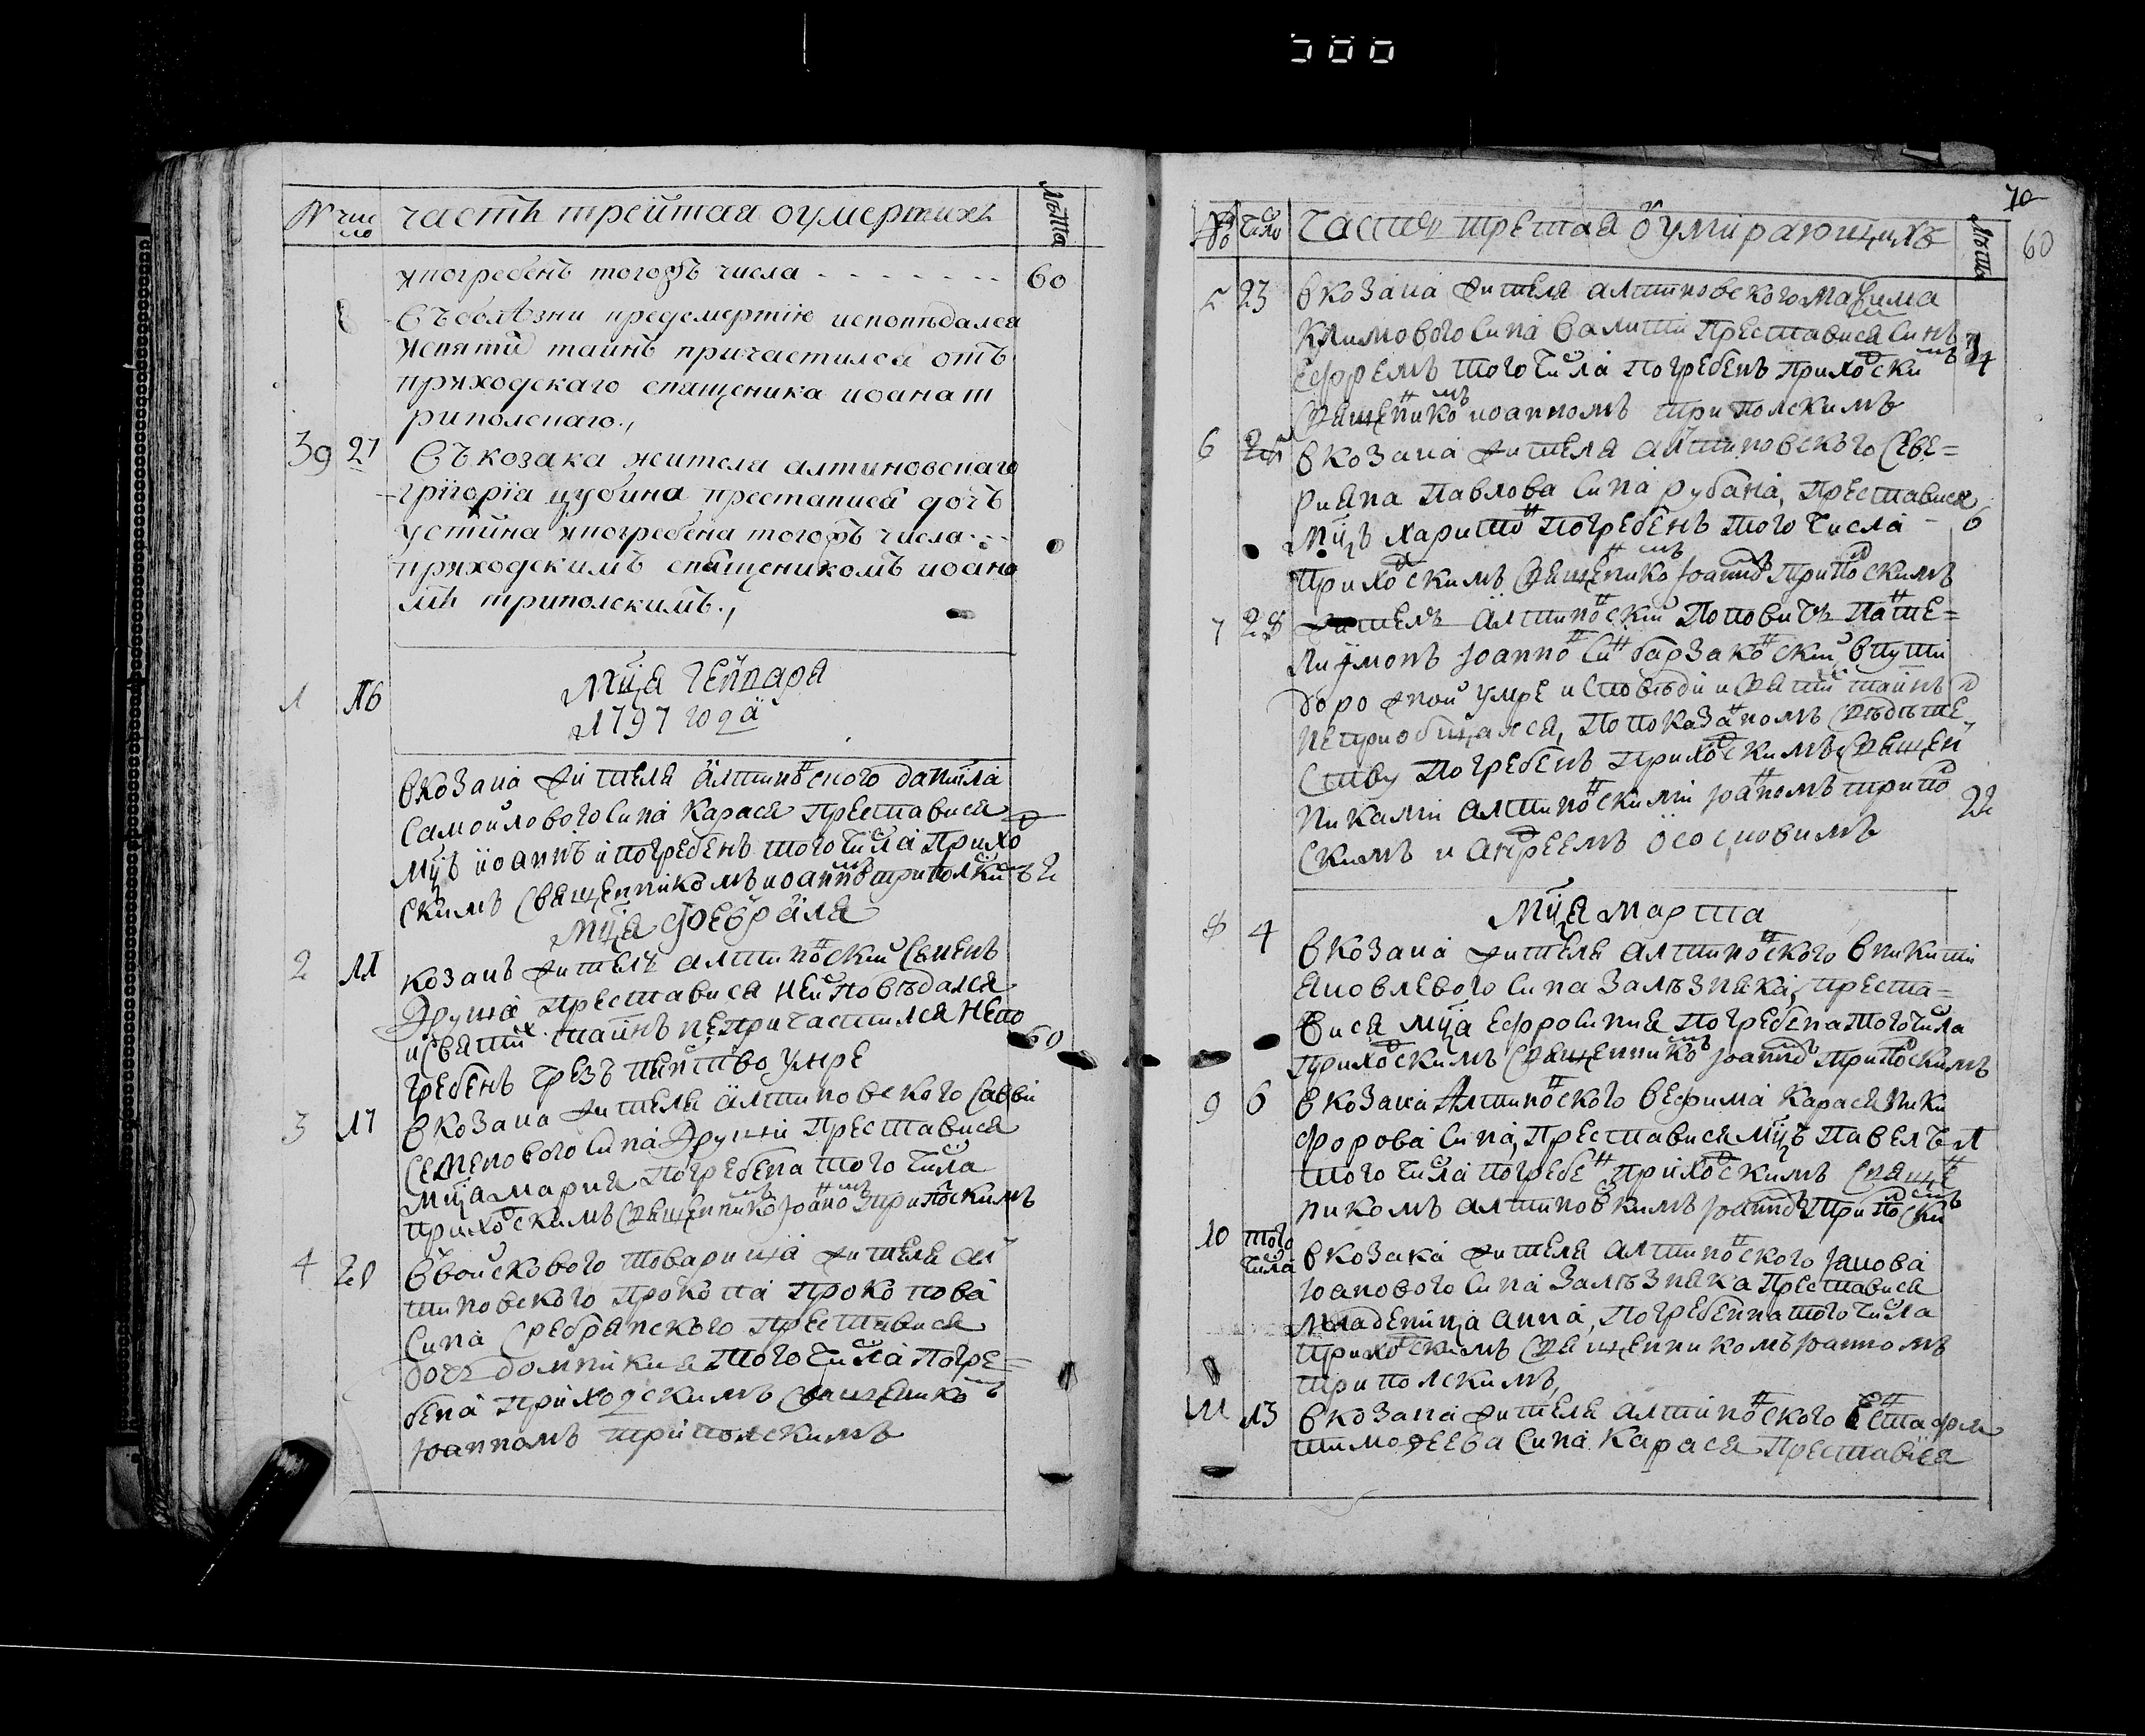 500
№ число часть трейтая оумертихъ лѣта
ипогребенъ тогожъ числа - - - - - - - 60
Съболѣзни предсмертию исповѣдался
исвяти таинъ причастился отъ
приходскаго священика иоана т
риполскаго.,
39 21 Съ козака жителя алтиновскаго
григорїа цубина преставися дочъ
устина ипогребена тогожъ числа
приходскимъ священикомъ иоано
мъ триполскимъ.,
1 16 Мцa генвара
1797 года
вкозака жителя алтиновского данила
Самоиловогосина Карася преставися
мцъ иоаннъ и погребенъ того числа Прихо
скимъ священникомъ иоанно триполски 2
Мця февраля
2 11 козакъ жителъ алтиновский Семенъ
преставися неисповѣдался
исвяти таинъ непричастился непо 60
гребенъ чрезъ пянство умре
3 17 вкозака жителя алтиновского Савви
Семеновогосина преставися
мца мария погребена того числа
прихоскимъ священнико иоано трипоскимъ
4 28 ввойскового товариша жителя ал
тиновского прокопа прокопова
Сина Сребранского преставися
дочъ домникия того числа погре=
бена приходскимъ священико
иоанномъ триполскимъ
70
№ число часть третая оумирающихъ лѣта 60
5 23 вкозака жителя алтиновского
Климовогосина преставися Синъ
Ефремъ того числа погребенъ прихоски
священико иоанномъ триполскимъ
6 вкозака жителя алтиновского Севе=
рияна Павлова Сина рубана, преставися
мцъ харито погребенъ того числа - 6
прихоскимъ священико иоанно трипоскимъ
7 28 жителъ алтиноский Поповичъ Пате=
лиймонъ иоанно Си барзаковский, впути
дорожной умре и Сповѣди и Святи таинъ
неприобщался, по показаномъ Свѣдите
Ству погребенъ прихоскимъ священ
никами алтиноскими иоаномъ трипо 22
Скимъ и андреемъ ососновимъ
Мця марта
8 4 вкозака жителя алтиноского вникити
яковлевого Сина Залѣзняка, преста=
вися мца ефросиния погребена того числа
прихоскимъ священнико иоанно трипоскимъ
9 6 вкозака Алтиноского вефима Карася ники
форова Сина, преставися мцъ Павелъ 1
того числа погребе прихоскимъ Свяще
никомъ алтиновкимъ иоанно трипоски
10 того числа вкозака жителя алтиноского иакова
иоановогосина Залѣзняка преставися
младеница анна, погребенна того числа
прихоскимъ священникомъ иоанномъ
триполскимъ,
11 13 вкозака жителя алтиноского Естафия
тимофеева Сина Карася преставися